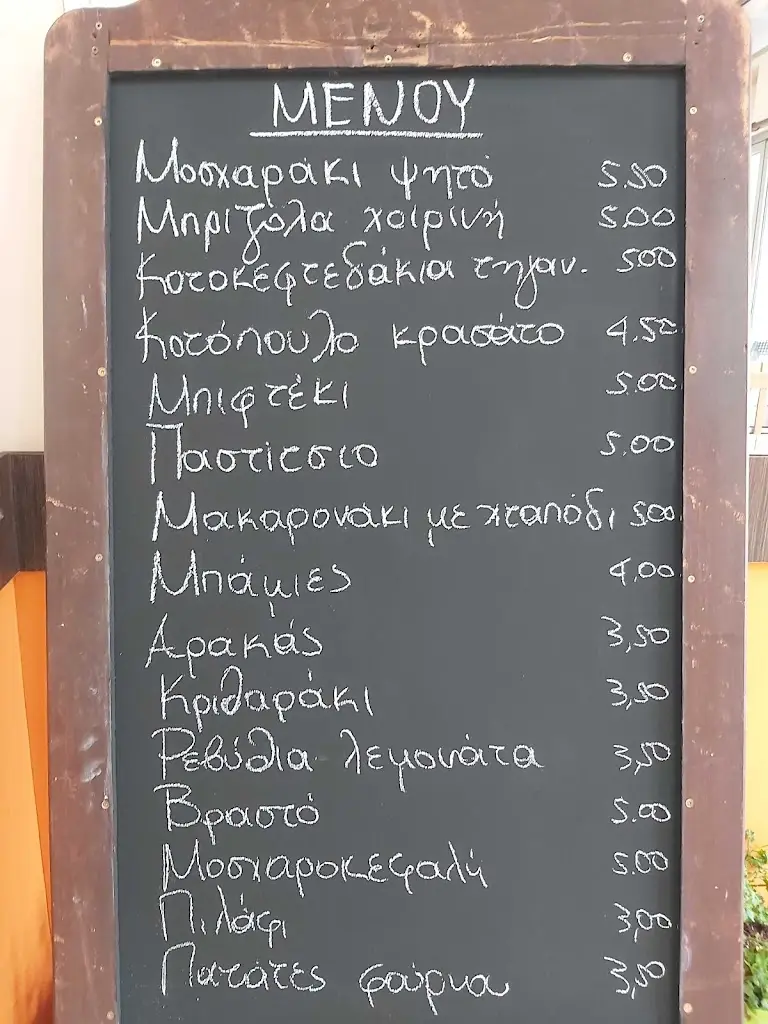 ΜΕΝΟΥ
Μοσχαράκι ψητό 5.50
Μπριτζόλα χοιρινή 5.00
Κοτοκεφτεδάκια τηγαν. 5.00
Κοτόπουλο κρασάτο 4.50
Μπιφτέκι 5.00
Παστίτσιο 5.00
Μακαρονάκι με χταπόδι 5.00
Μπάμιες 4,00
Αρακάς 3,50
Κριθαράκι 3,50
Ρεβύθια λεμονάτα 3,50
Βραστό 5.00
Μοσχαροκεφαλή 5.00
Πιλάφι 3,00
Πατάτες φούρνου 3,50